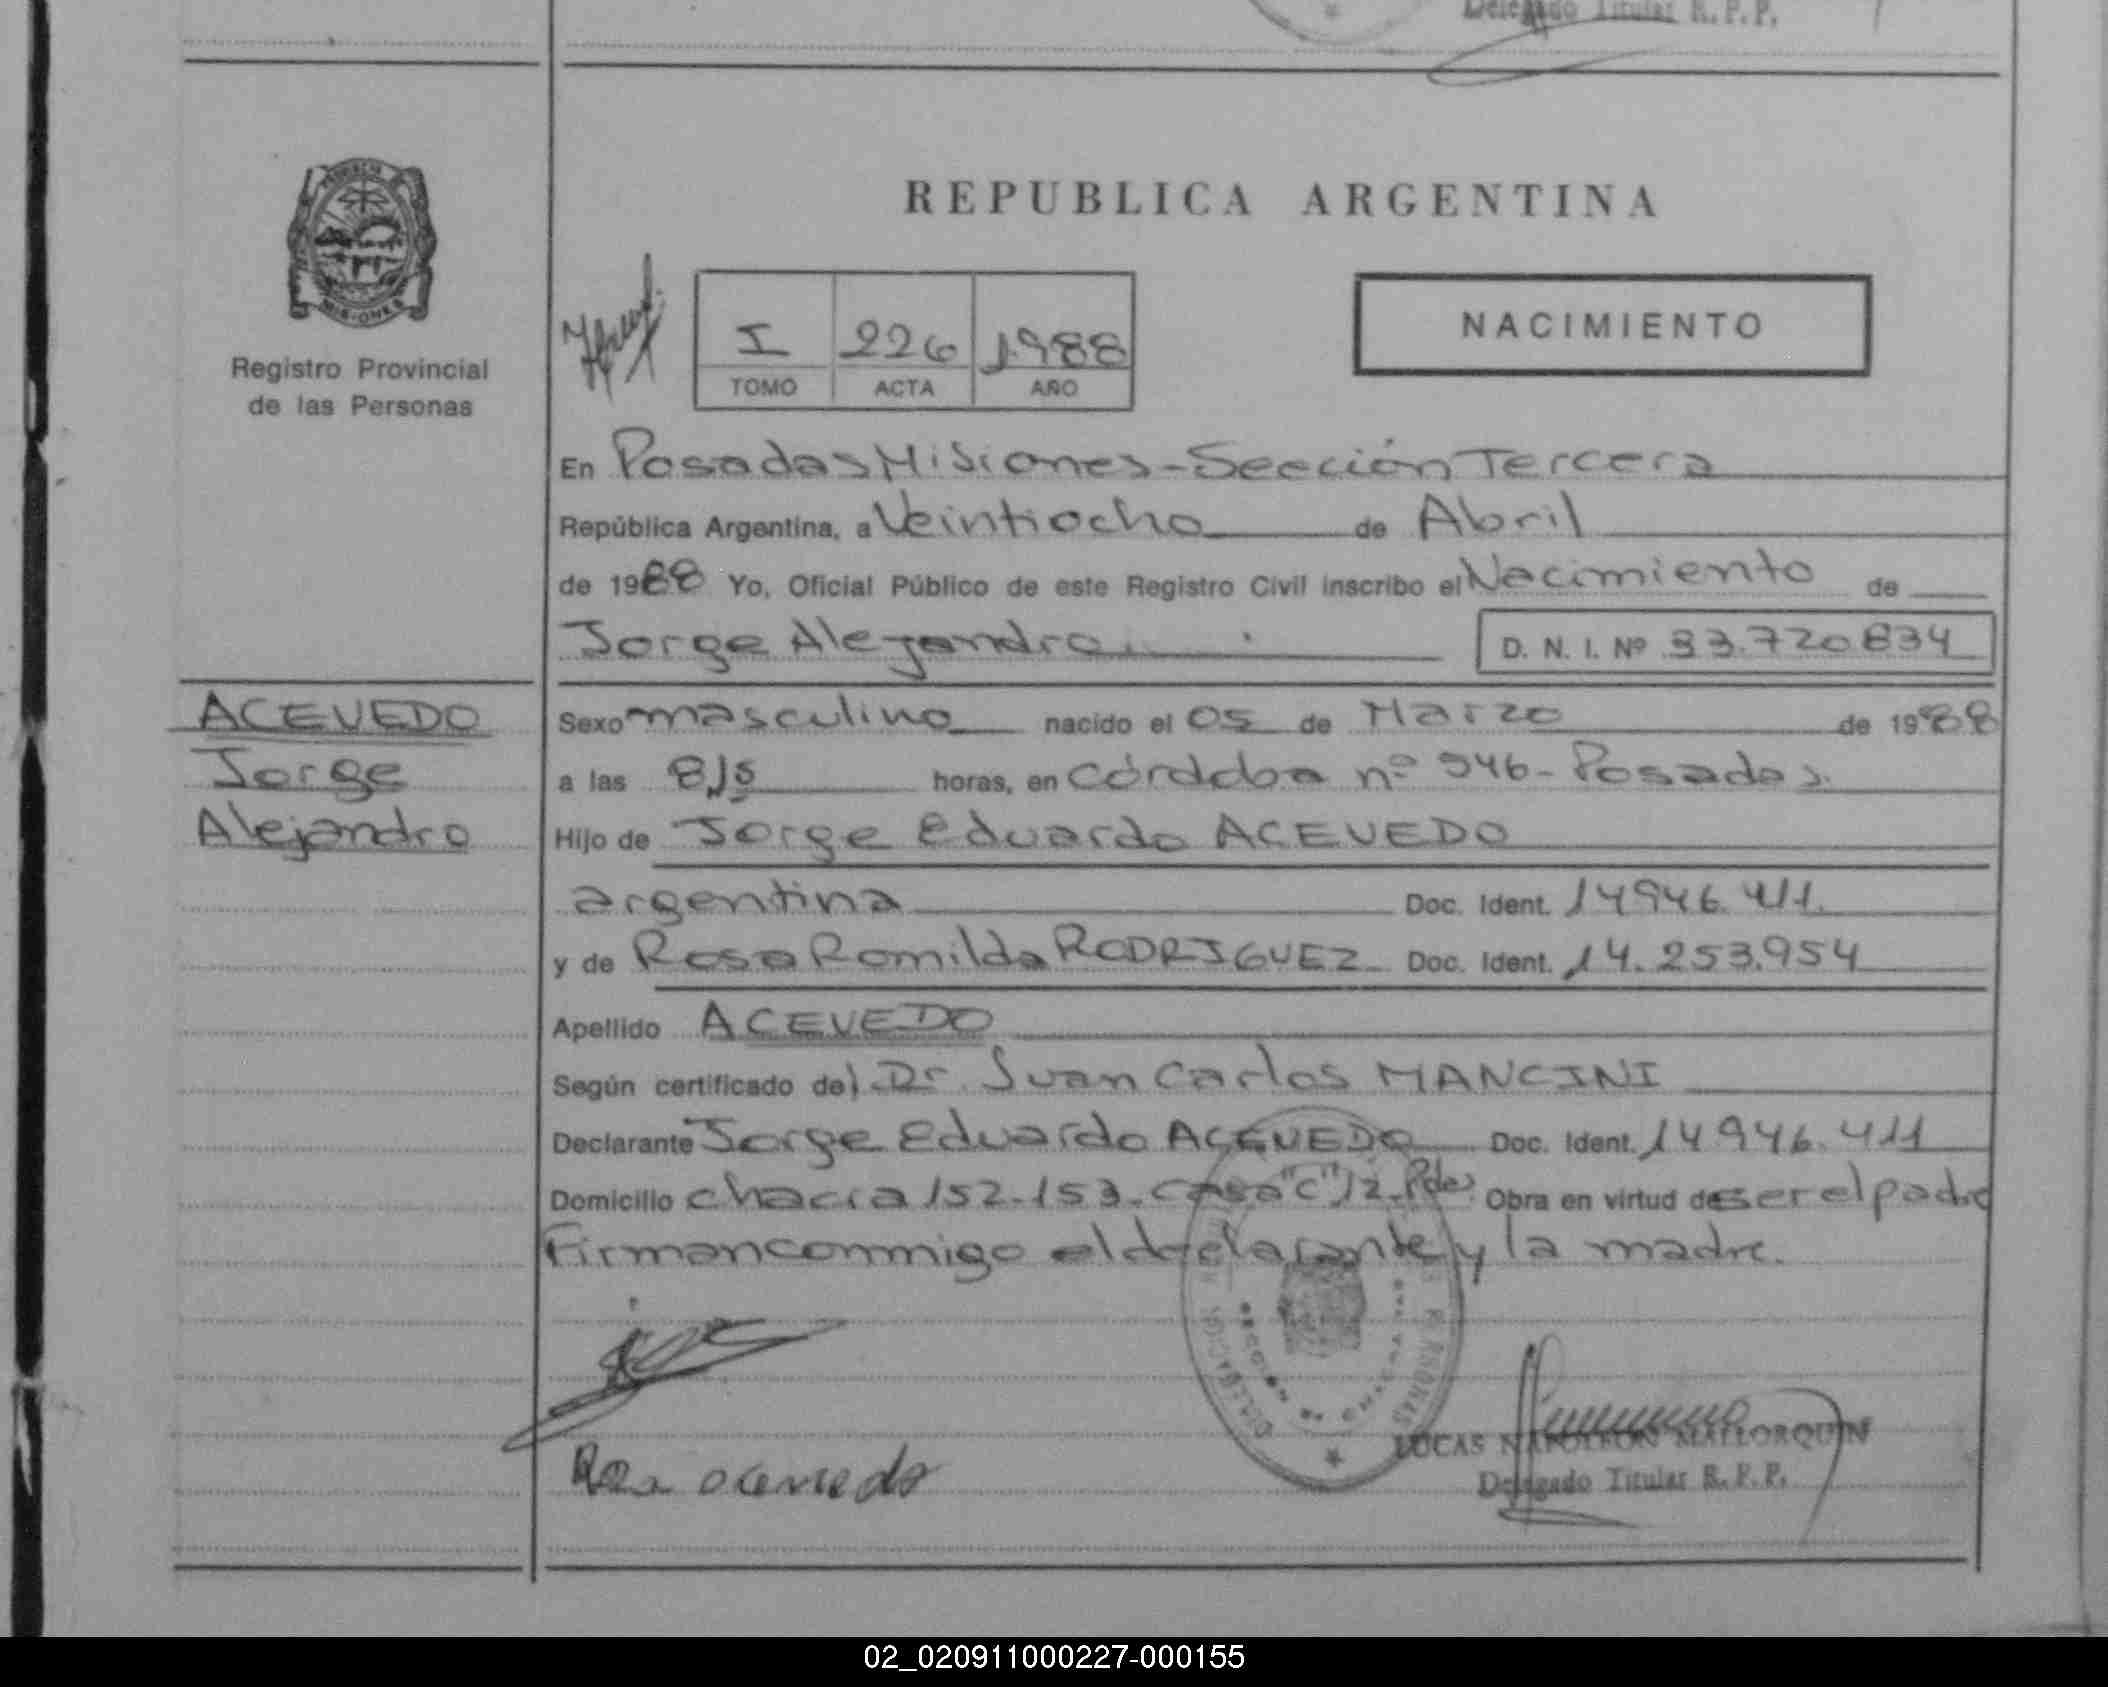 Delegado Titular R. P. P.
PROVINCIA DE
MISIONES
Registro Provincial
de las Personas
REPUBLICA ARGENTINA
I 226 1988
TOMO ACTA AÑO
NACIMIENTO
En Posadas Misiones - Sección Tercera
República Argentina, a Veintiocho de Abril
de 1988 Yo, Oficial Público de este Registro Civil inscribo el Nacimiento de
Jorge Alejandro D. N. I. Nº 33.720.834
ACEVEDO
Jorge
Alejandro
Sexo masculino nacido el 05 de Marzo de 1988
a las 8,15 horas, en Córdoba nº 946 - Posadas.
Hijo de Jorge Eduardo ACEVEDO
argentina Doc. Ident. 14946.411.
y de Rosa Romilda RODRIGUEZ Doc. Ident. 14.253.954
Apellido ACEVEDO
Según certificado del Dr. Juan Carlos MANCINI
Declarante Jorge Eduardo ACEVEDO Doc. Ident. 14946.411
Domicilio chacra 152-153. casa "C" 12. Pdas. Obra en virtud de ser el padre
Firman conmigo el declarante y la madre.
Rosa acevedo
LUCAS NAPOLEON MALLORQUIN
Delegado Titular R. P. P.
02_020911000227-000155